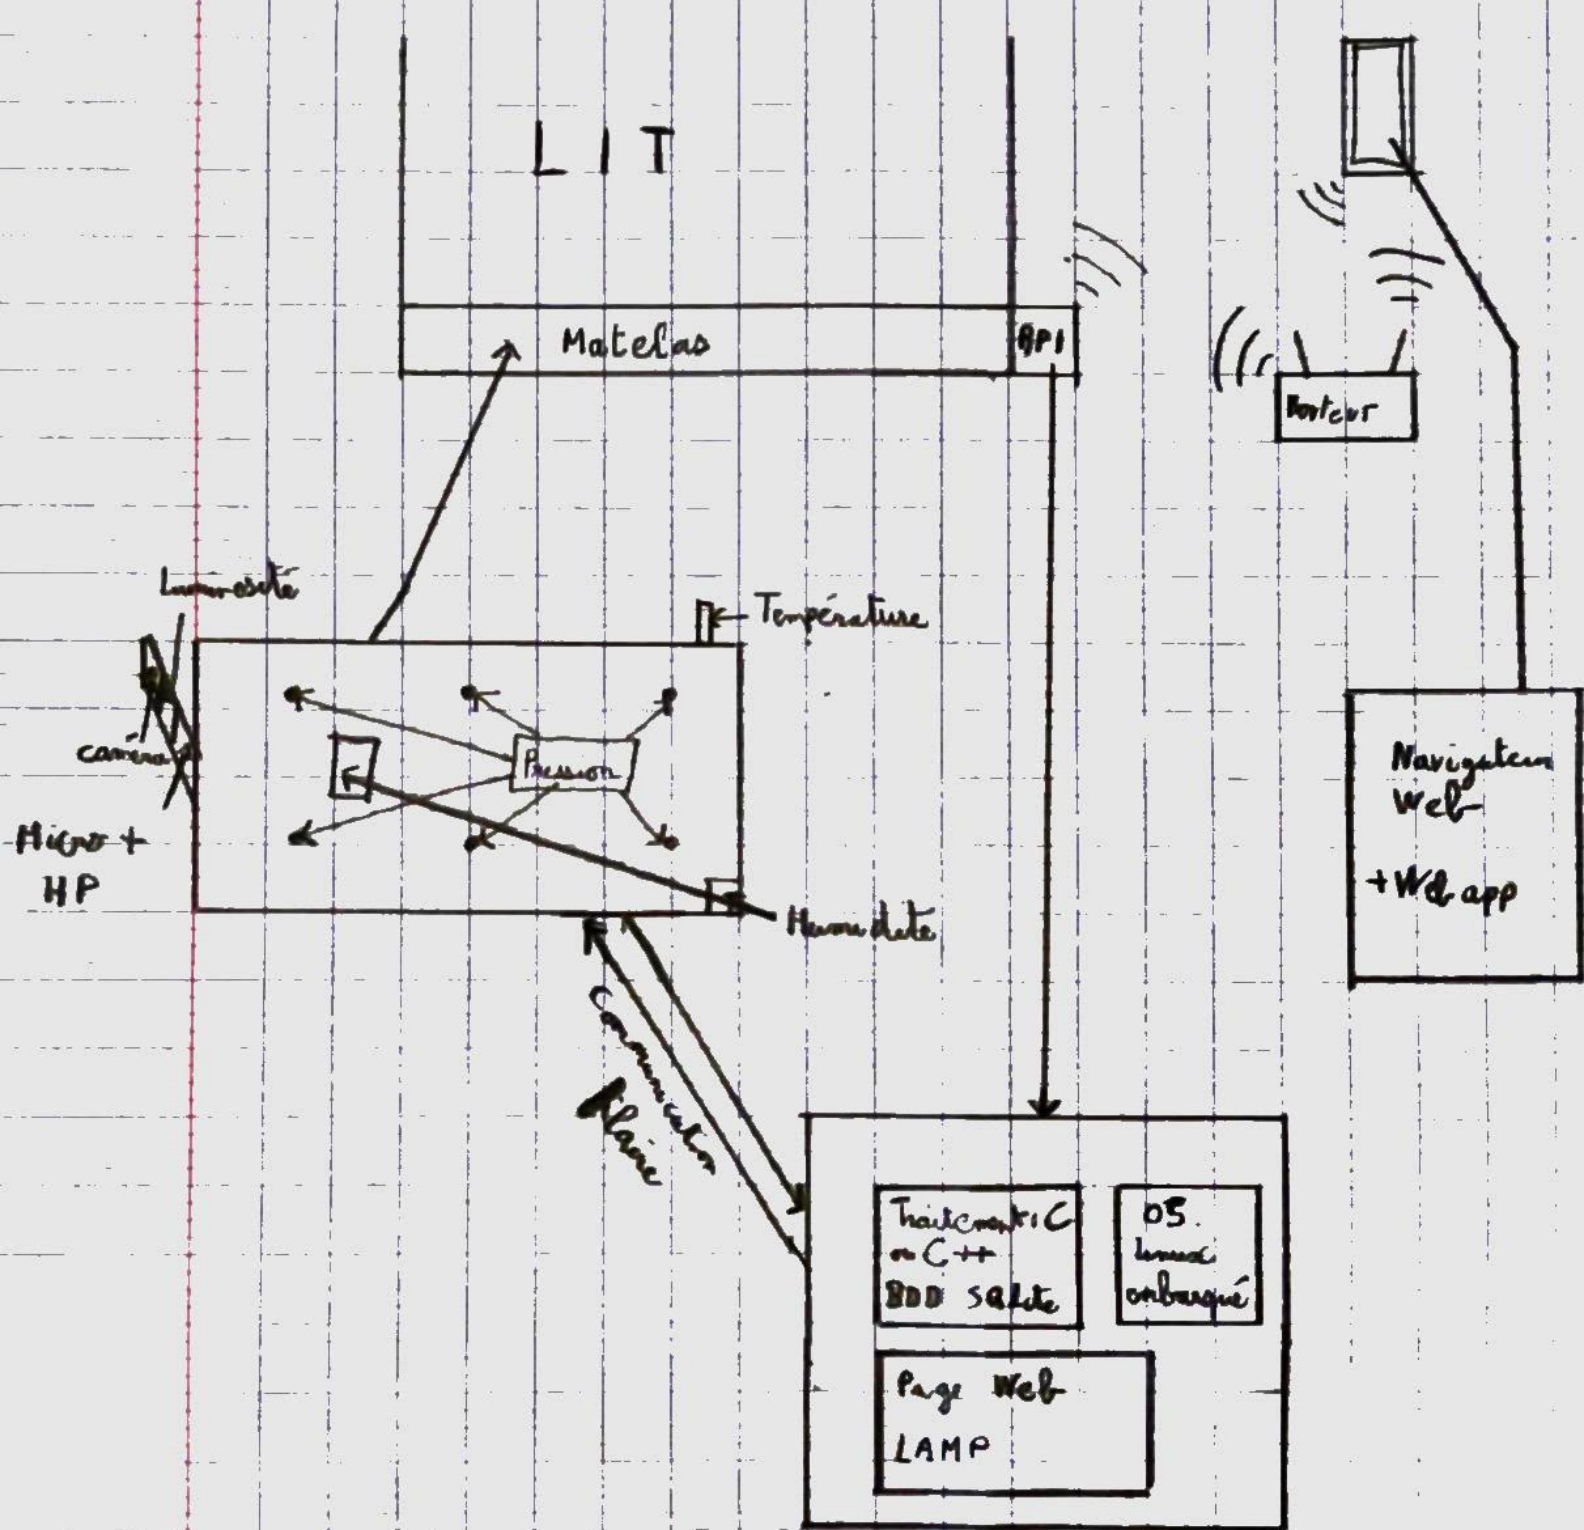 LIT
Matelas
RPI
Routeur
Luminosité
Température
caméra
Pression
Micro +
HP
Humidité
Navigateur
Web
+ Web app
Communication
filaire
Traitement : C
ou C++
BDD SQLite
OS.
linux
embarqué
Page Web
LAMP